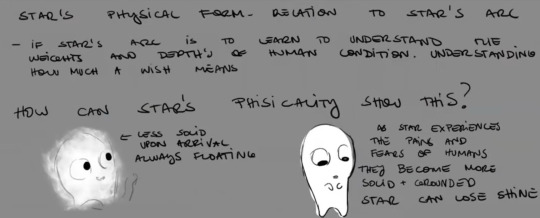 STAR'S PHYSICAL FORM - RELATION TO STAR'S ARC
- IF STAR'S ARC IS TO LEARN TO UNDERSTAND THE
WEIGHTS AND DEPTH'S OF HUMAN CONDITION. UNDERSTANDING
HOW MUCH A WISH MEANS
HOW CAN STAR'S PHISICALITY SHOW THIS?
← LESS SOLID
UPON ARRIVAL
ALWAYS FLOATING
AS STAR EXPERIENCES
THE PAINS AND
FEARS OF HUMANS
THEY BECOME MORE
SOLID + GROUNDED
STAR CAN LOSE SHINE